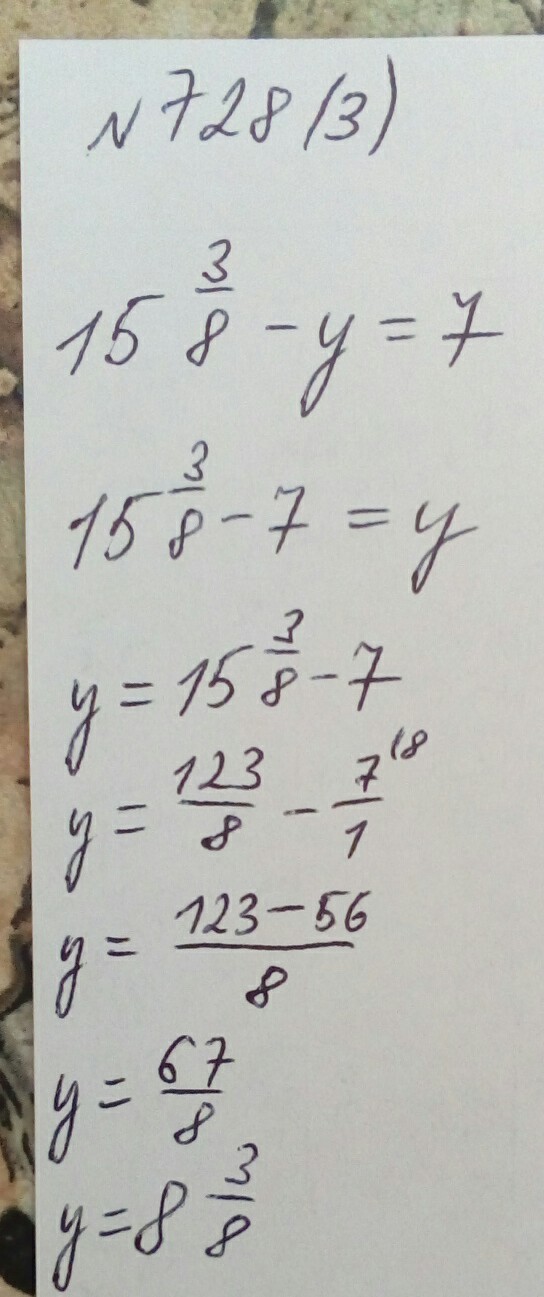 №728(3)
15 3/8 - y = 7
15 3/8 - 7 = y
y = 15 3/8 - 7
y = 123/8 - 7/1 (8
y = (123-56)/8
y = 67/8
y = 8 3/8